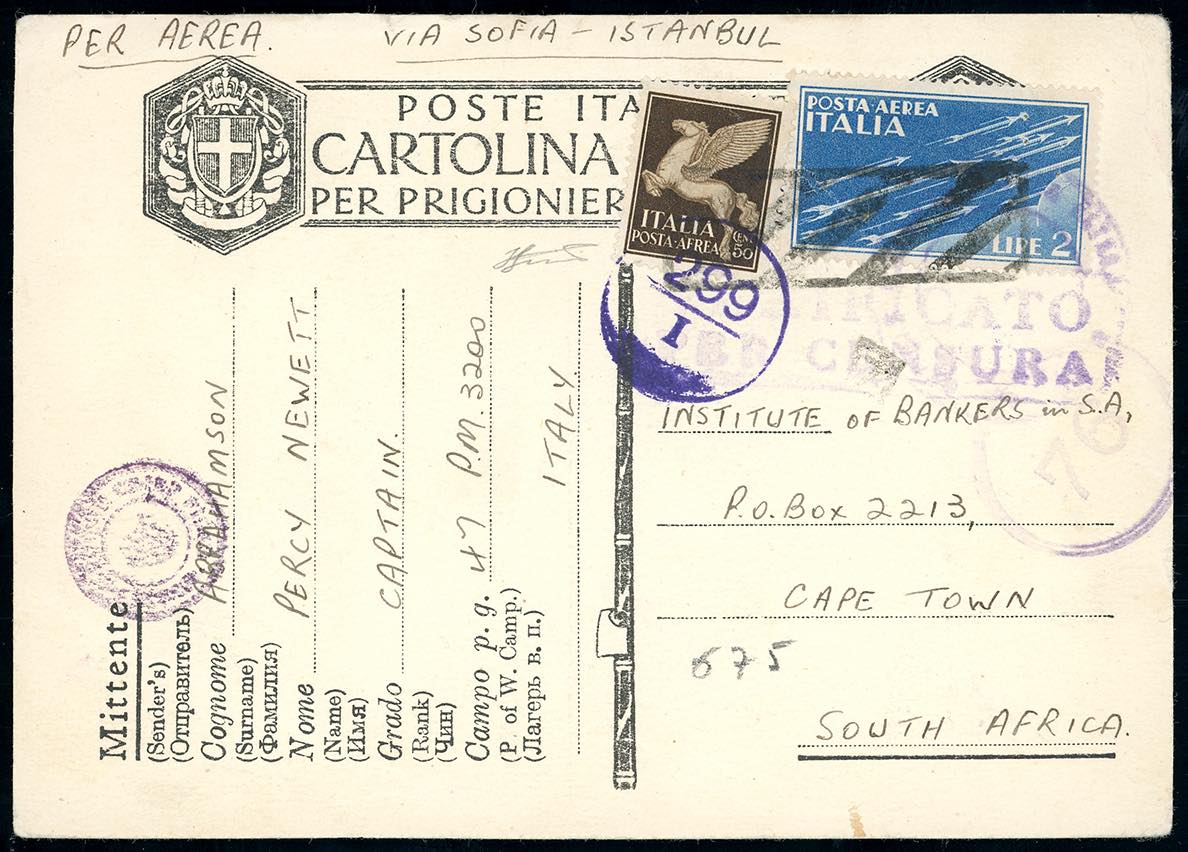 PER AEREA. VIA SOFIA - ISTANBUL
POSTE ITA
CARTOLINA
PER PRIGIONIER
ITALIA
POSTA·AEREA
CENT 50
POSTA·AEREA
ITALIA
LIRE 2
299
I
PER CENSURA
76
INSTITUTE OF BANKERS in S.A,
P.O. BOX 2213,
CAPE TOWN
675
SOUTH AFRICA.
Mittente
(Sender's)
(Отправитель)
Cognome ABRAHAMSON
(Surname)
(Фамилия)
Nome PERCY NEWETT
(Name)
(Имя)
Grado CAPTAIN.
(Rank)
(Чин)
Campo p. g. 47 P.M. 3200
(P. of W. Camp.)
(Лагерь в. п.)
ITALY